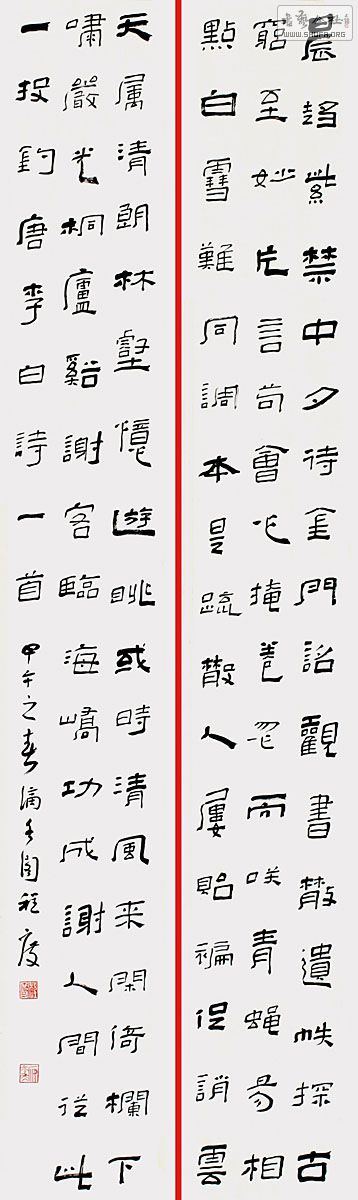 晨趍紫禁中夕待金門詔觀書散遺帙探古
窮至妙片言苟會心掩卷忽而咲青蠅易相
點白雪難同調本是疏散人屢貽褊促誚雲
天属清朗林壑憶遊眺或時清風来閑倚欄下
嘯嚴光桐廬谿謝客臨海嶠功成謝人間從此
一投釣唐李白詩一首
甲午之春
WWW.SHUFA.ORG